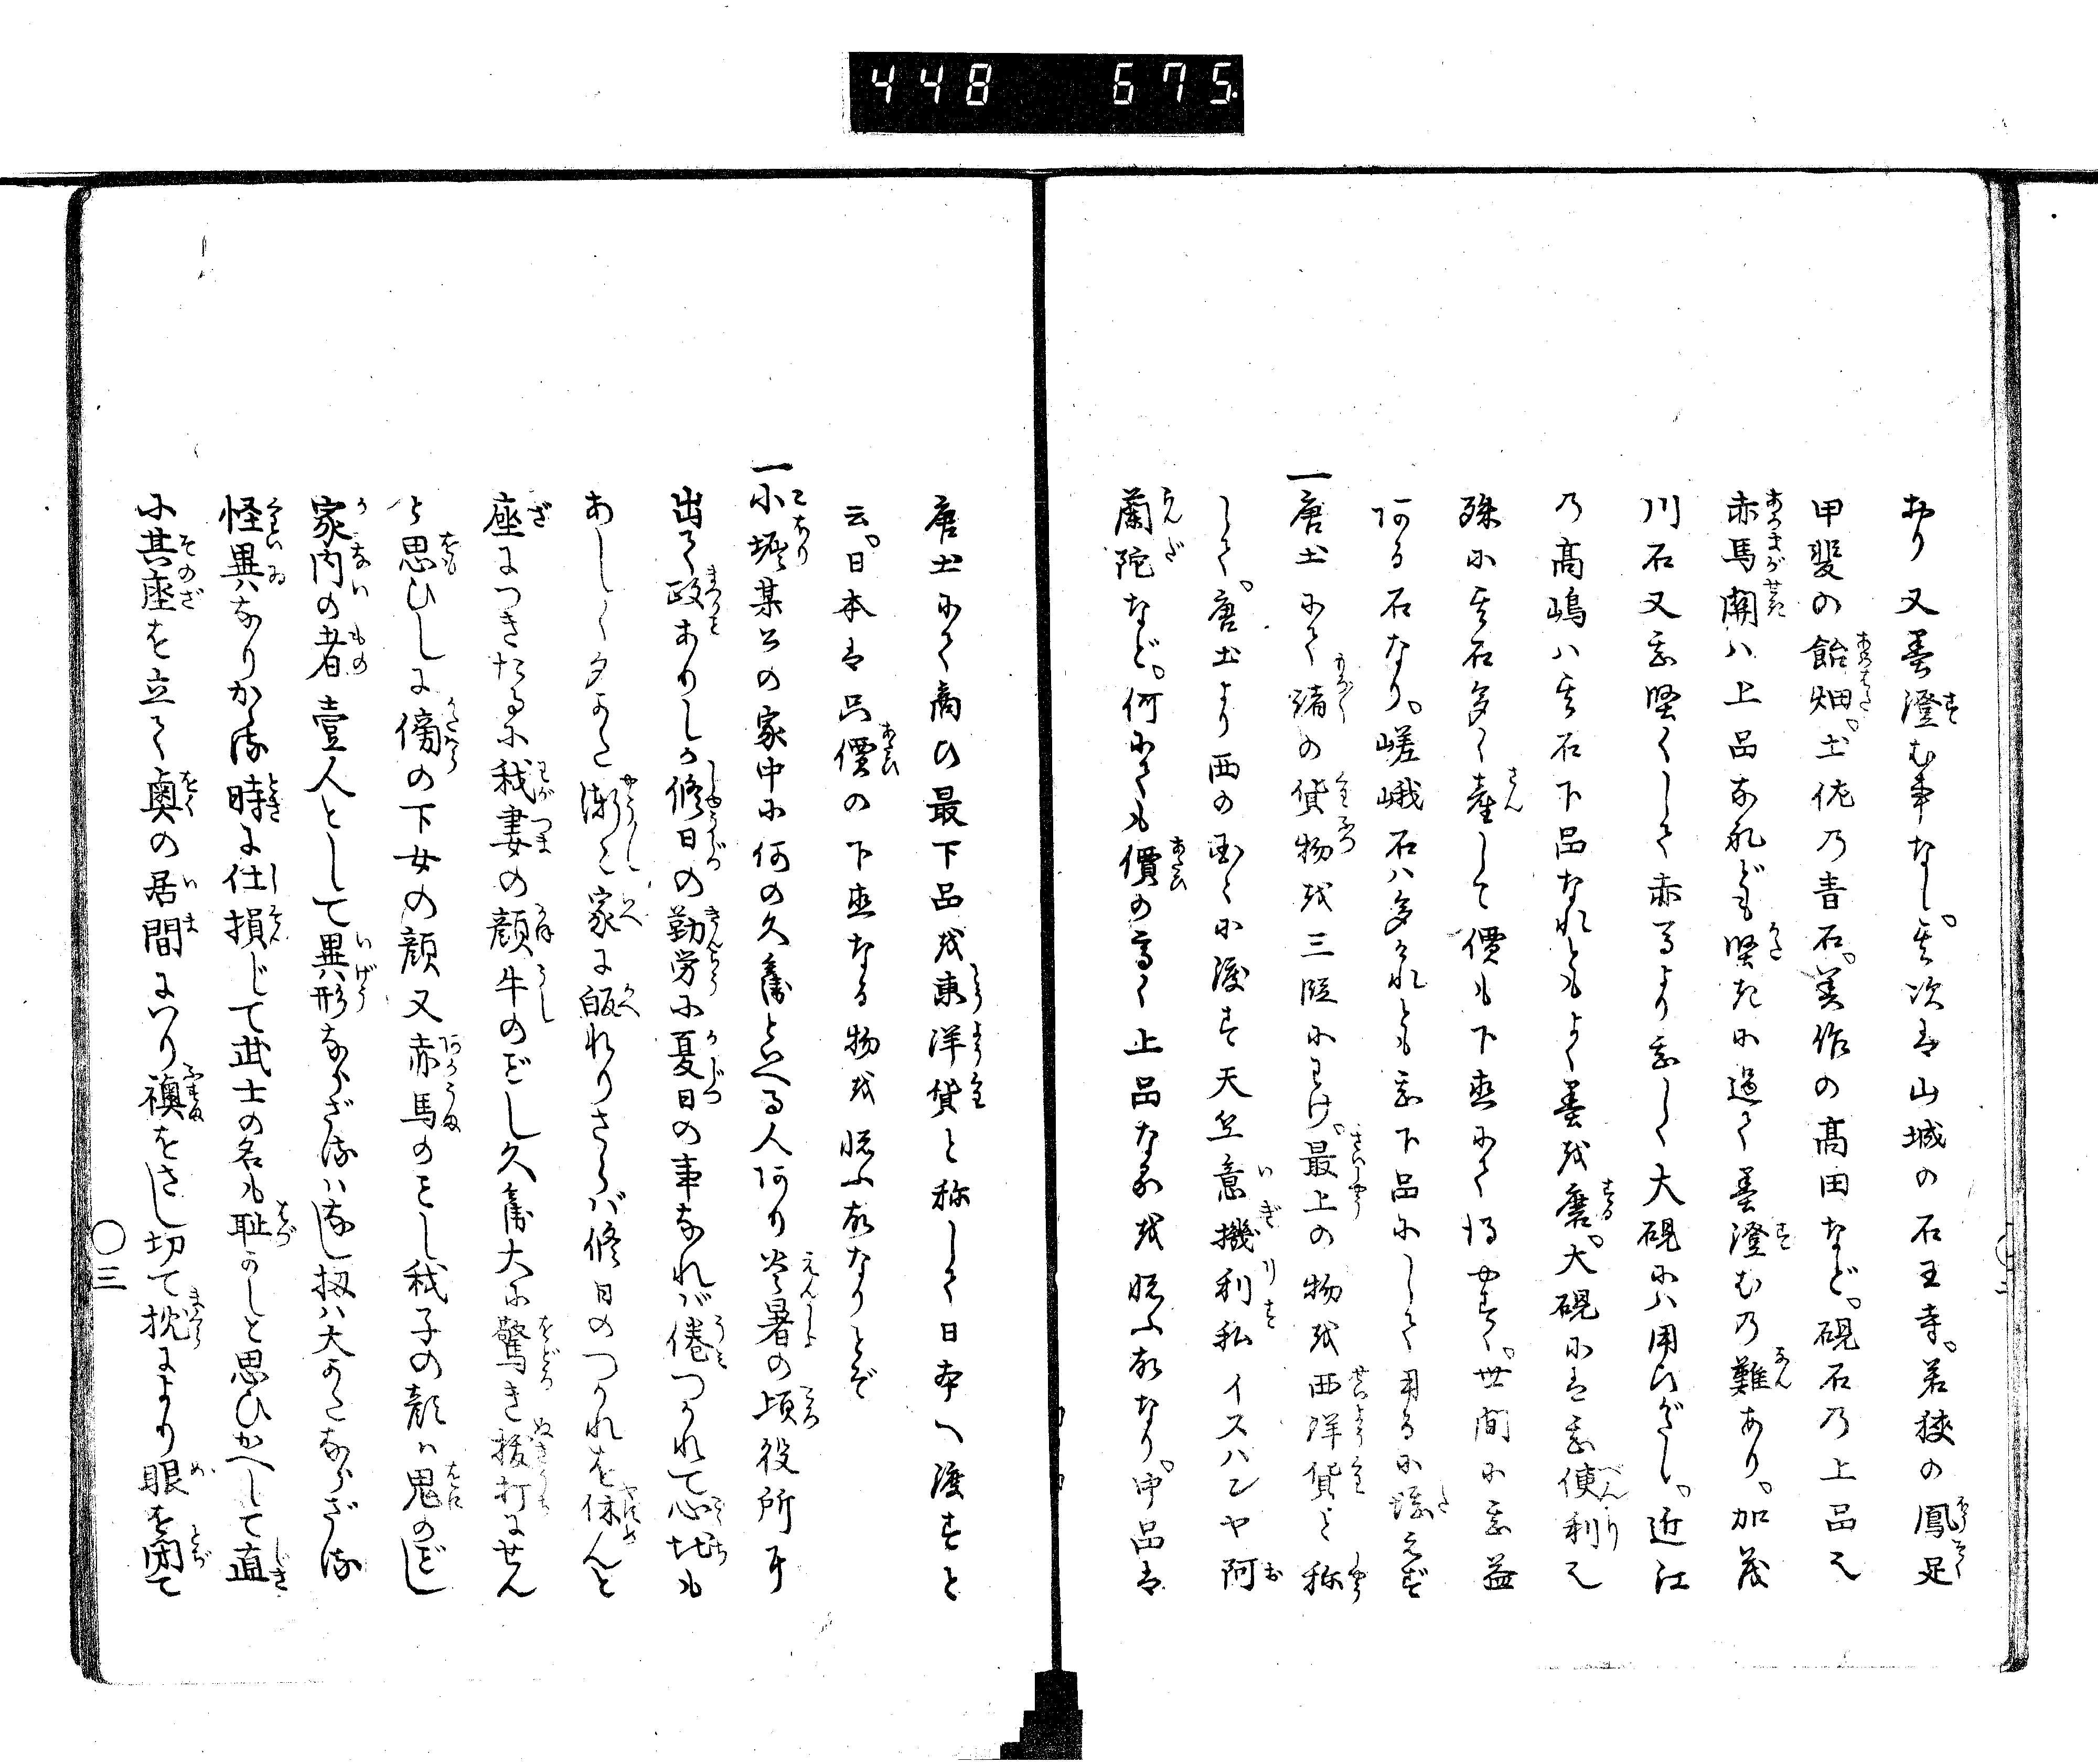 448 675
おり又墨澄む事なし。其次は山城の石王寺。若狭の鳳足
甲斐の飴畑。土佐の青石。美作の高田など。硯石の上品也
赤馬関ハ上品なれども堅きに過て墨澄むの難あり。加茂
川石又至堅くして赤間より悪しく大硯にハ用ひがたし。近江
の高嶋ハ其石下品なれともよく墨を磨る。大硯には至便利也
殊に其石多く産して價も下直にて得やすく。世間に至益
ある石なり。嵯峨石ハ多けれとも至下品にして用るに堪えず
一唐土にて諸の貨物を三段にわけ。最上の物を西洋貨と称
して。唐土より西の國々に渡す天竺意機利私イスハンヤ阿
蘭陀など。何にても價の高く上品なるを賑ふ故なり。中品は
唐土にて商ひ最下品を東洋貨と称して日本へ渡すと
云。日本は只價の下直なる物を賑ふ故なりとぞ
一小堀某公の家中に何の久蕃といへる人あり炎暑の頃役所に
出て政ありしが終日の勤労に夏日の事なれバ倦つかれて心地も
あしく夕かた漸々家に皈れりさらバ終日のつかれを休んと
座につきたるに我妻の顔牛のごとし久蕃大に驚き抜打にせん
と思ひしに傍の下女の顔又赤馬のことし我子の顔ハ鬼のごとし
家内の者壹人として異形ならざるハなし扨ハ大かたならざる
怪異ハなりかゝる時に仕損じて武士の名も恥かしと思ひかへして直
に其座を立て奥の居間に入り襖をさし切て枕により眼を閉て
〇三